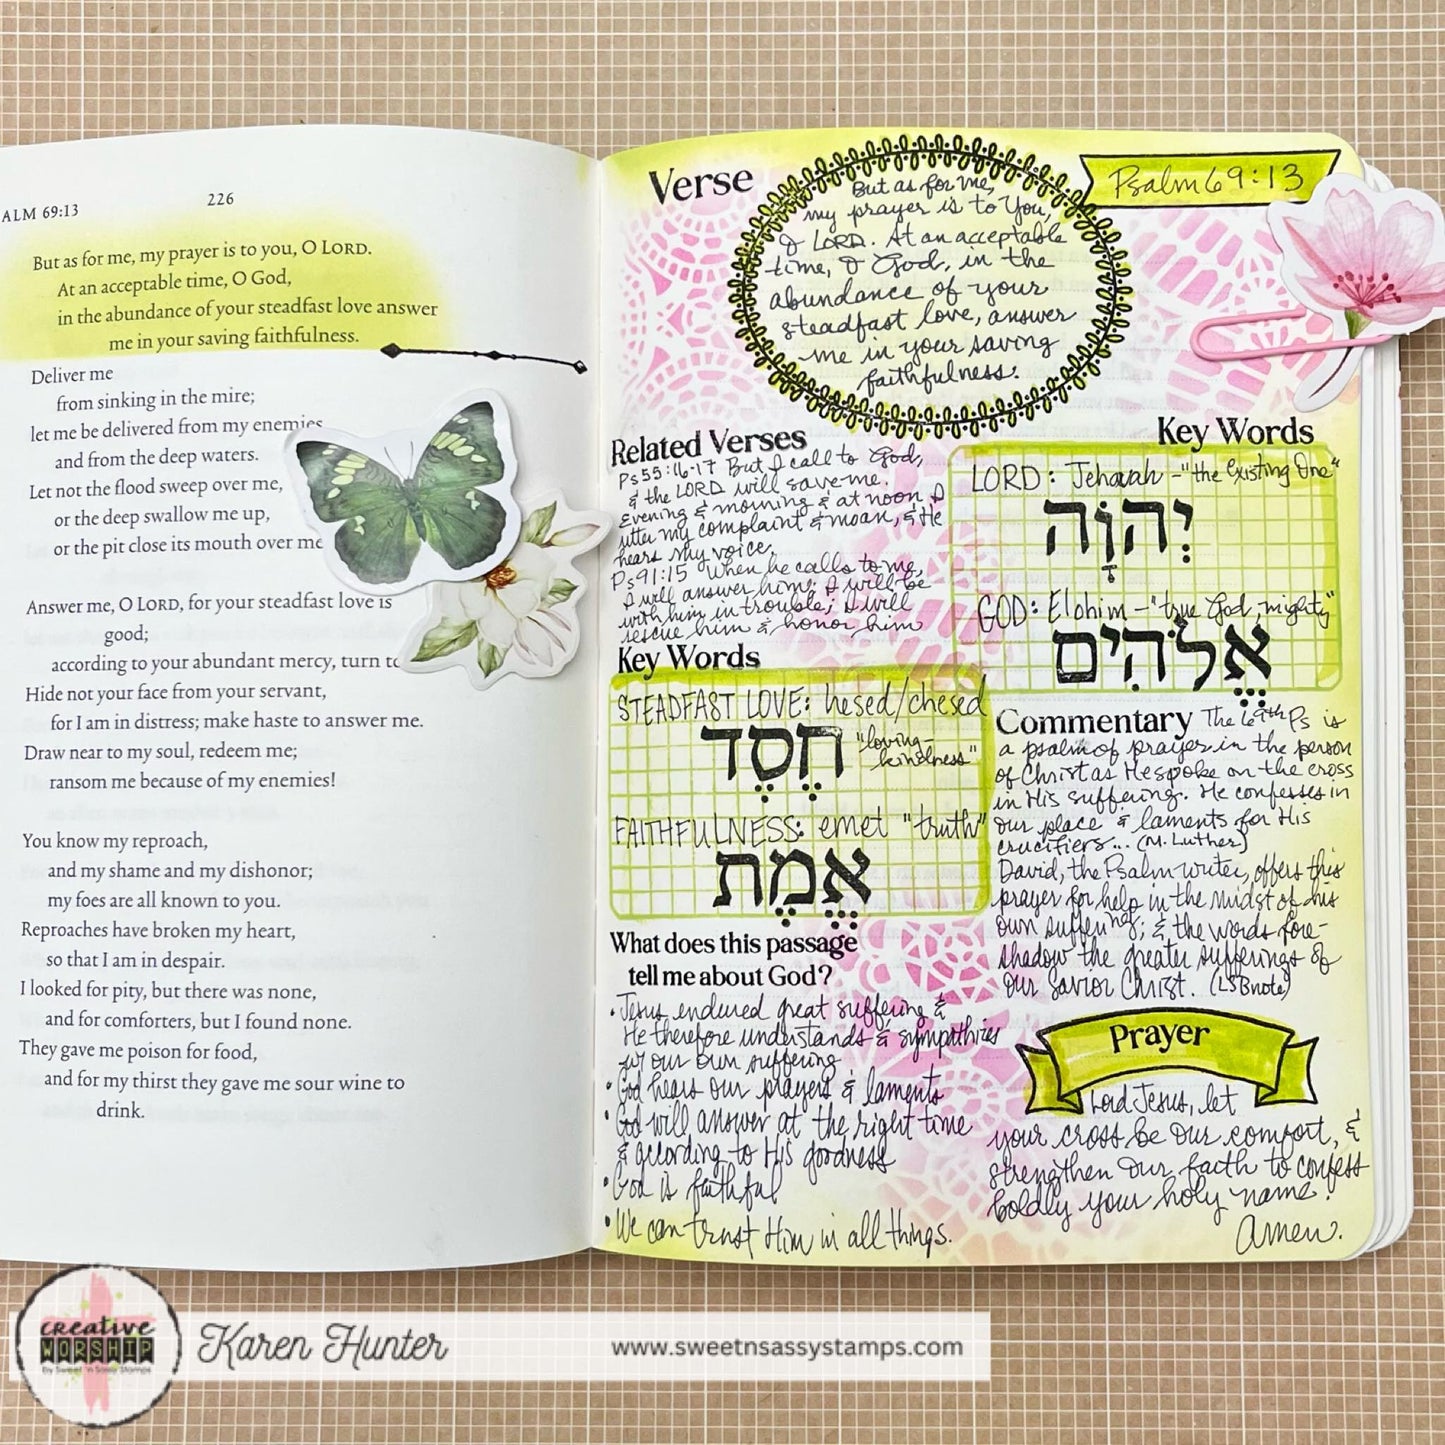 226
ALM 69:13
But as for me, my prayer is to you, O LORD.
At an acceptable time, O God,
in the abundance of your steadfast love answer
me in your saving faithfulness.
Deliver me
from sinking in the mire;
let me be delivered from my enemies
and from the deep waters.
Let not the flood sweep over me,
or the deep swallow me up,
or the pit close its mouth over me
Answer me, O LORD, for your steadfast love is
good;
according to your abundant mercy, turn to
Hide not your face from your servant,
for I am in distress; make haste to answer me.
Draw near to my soul, redeem me;
ransom me because of my enemies!
You know my reproach,
and my shame and my dishonor;
my foes are all known to you.
Reproaches have broken my heart,
so that I am in despair.
I looked for pity, but there was none,
and for comforters, but I found none.
They gave me poison for food,
and for my thirst they gave me sour wine to
drink.
Verse
But as for me,
my prayer is to You,
O LORD. At an acceptable
time, O God, in the
abundance of your
steadfast love, answer
me in your saving
faithfulness.
Psalm 69:13
Related Verses
Ps 55:16-17 But I call to God,
& the LORD will save me.
Evening & morning & at noon I
utter my complaint & moan, & He
hears my voice.
Ps 91:15 When he calls to me,
I will answer him; I will be
with him in trouble; I will
rescue him & honor him
Key Words
LORD: Jehovah - "the Existing One"
יְהוָֹה
GOD: Elohim - "true God, mighty"
אֱלֹהִים
Key Words
STEADFAST LOVE: hesed/chesed
חֶסֶד
"loving-
kindness"
FAITHFULNESS: emet "truth"
אֱמֶת
Commentary The 69th Ps is
a psalm of prayer in the person
of Christ as He spoke on the cross
in His suffering. He confesses in
our place & laments for His
crucifiers... (M. Luther)
David, the Psalm writer, offers this
prayer for help in the midst of his
own suffering; & the words fore-
shadow the greater sufferings of
Our Savior Christ. (LSB note)
What does this passage
tell me about God?
• Jesus endured great suffering &
He therefore understands & sympathizes
w/ our own suffering
• God hears our prayers & laments
• God will answer at the right time
& according to His goodness
• God is faithful
• We can trust Him in all things.
Prayer
Lord Jesus, let
your cross be our comfort, &
strengthen our faith to confess
boldly your holy name.
Amen.
creative
WORSHIP
By Sweet 'n Sassy Stamps
Karen Hunter
www.sweetnsassystamps.com